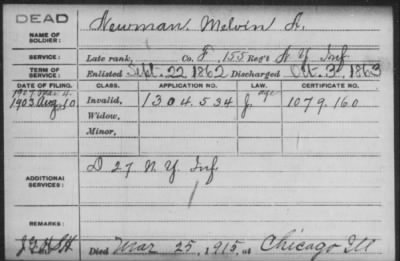 DEAD
NAME OF SOLDIER:
Newman. Melvin A.
SERVICE:
Late rank, Co. F, 155 Reg't N Y Inf
TERM OF SERVICE:
Enlisted Sept. 22 1862 Discharged Oct. 3, 1863
DATE OF FILING. CLASS. APPLICATION NO. LAW. CERTIFICATE NO.
1907 Mar 4. age
1903 Aug 10 Invalid, 1304.534 J 1079.160
Widow,
Minor,
ADDITIONAL SERVICES:
D 27 N. Y. Inf
REMARKS:
Died Mar 25, 1915, at Chicago Ill